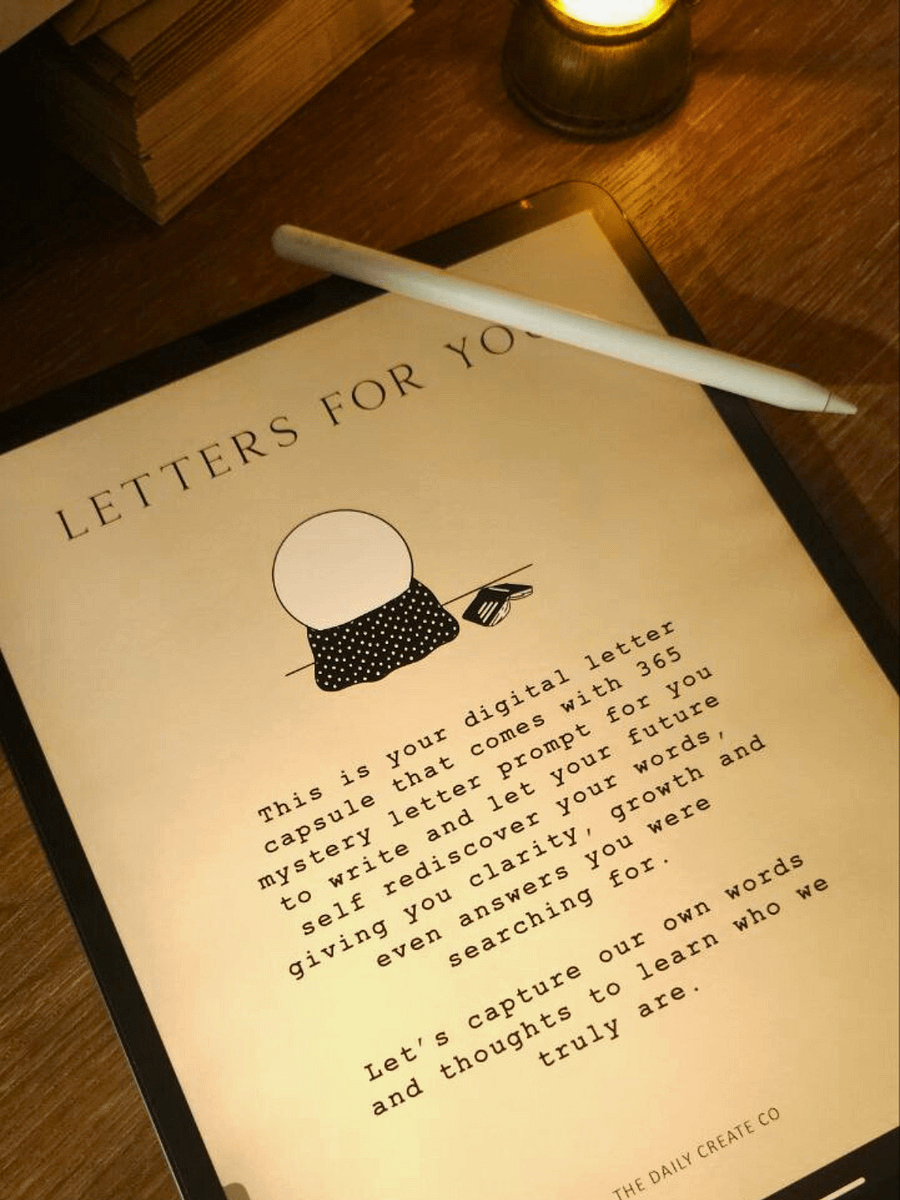 LETTERS FOR YOU
This is your digital letter
capsule that comes with 365
mystery letter prompt for you
to write and let your future
self rediscover your words,
giving you clarity, growth and
even answers you were
searching for.
Let's capture our own words
and thoughts to learn who we
truly are.
THE DAILY CREATE CO